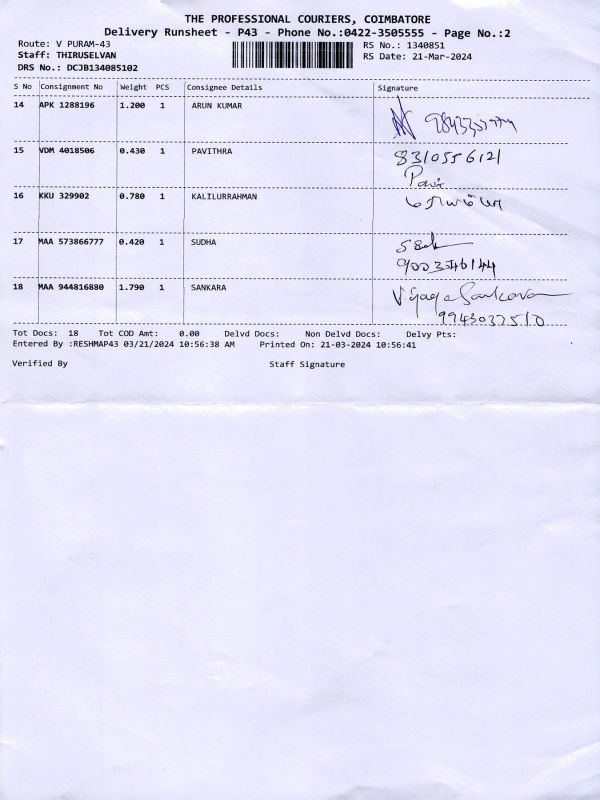 THE PROFESSIONAL COURIERS, COIMBATORE
Delivery Runsheet - P43 - Phone No.:0422-3505555 - Page No.:2
Route: V PURAM-43 RS No.: 1340851
Staff: THIRUSELVAN RS Date: 21-Mar-2024
DRS No.: DCJB134085102
S No Consignment No Weight PCS Consignee Details Signature
14 APK 1288196 1.200 1 ARUN KUMAR
15 VDM 4018506 0.430 1 PAVITHRA 8310556121
Pavi
16 KKU 329902 0.780 1 KALILURRAHMAN
17 MAA 573866777 0.420 1 SUDHA
18 MAA 944816880 1.790 1 SANKARA Vijaya Sankara
9943037510
Tot Docs: 18 Tot COD Amt: 0.00 Delvd Docs: Non Delvd Docs: Delvy Pts:
Entered By :RESHMAP43 03/21/2024 10:56:38 AM Printed On: 21-03-2024 10:56:41
Verified By Staff Signature